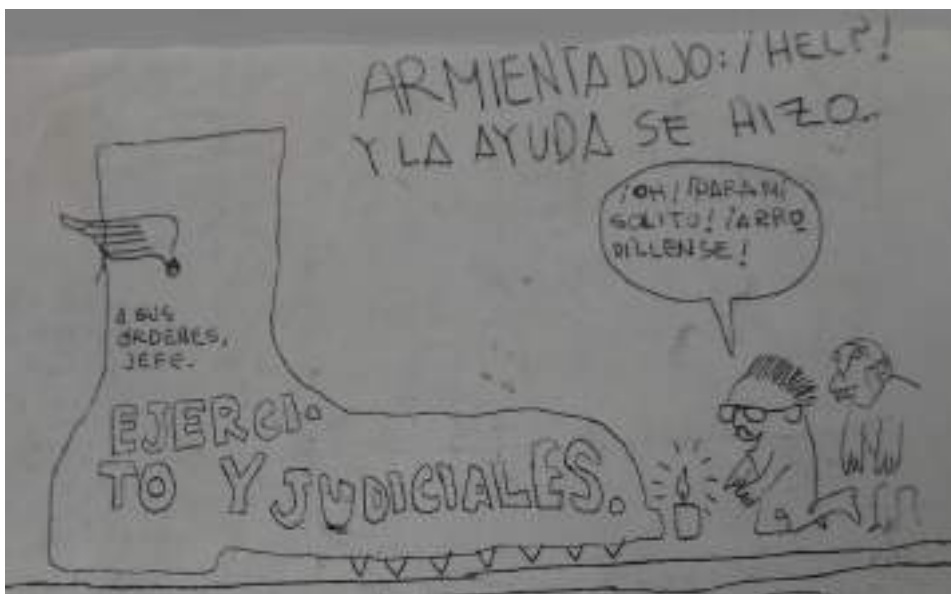 ARMIENTA DIJO: ¡HELP!
Y LA AYUDA SE HIZO..
¡OH! ¡PARA MÍ
SOLITO! ¡ARRO
DILLENSE!
A SUS
ÓRDENES,
JEFE.
EJERCI-
TO Y JUDICIALES.